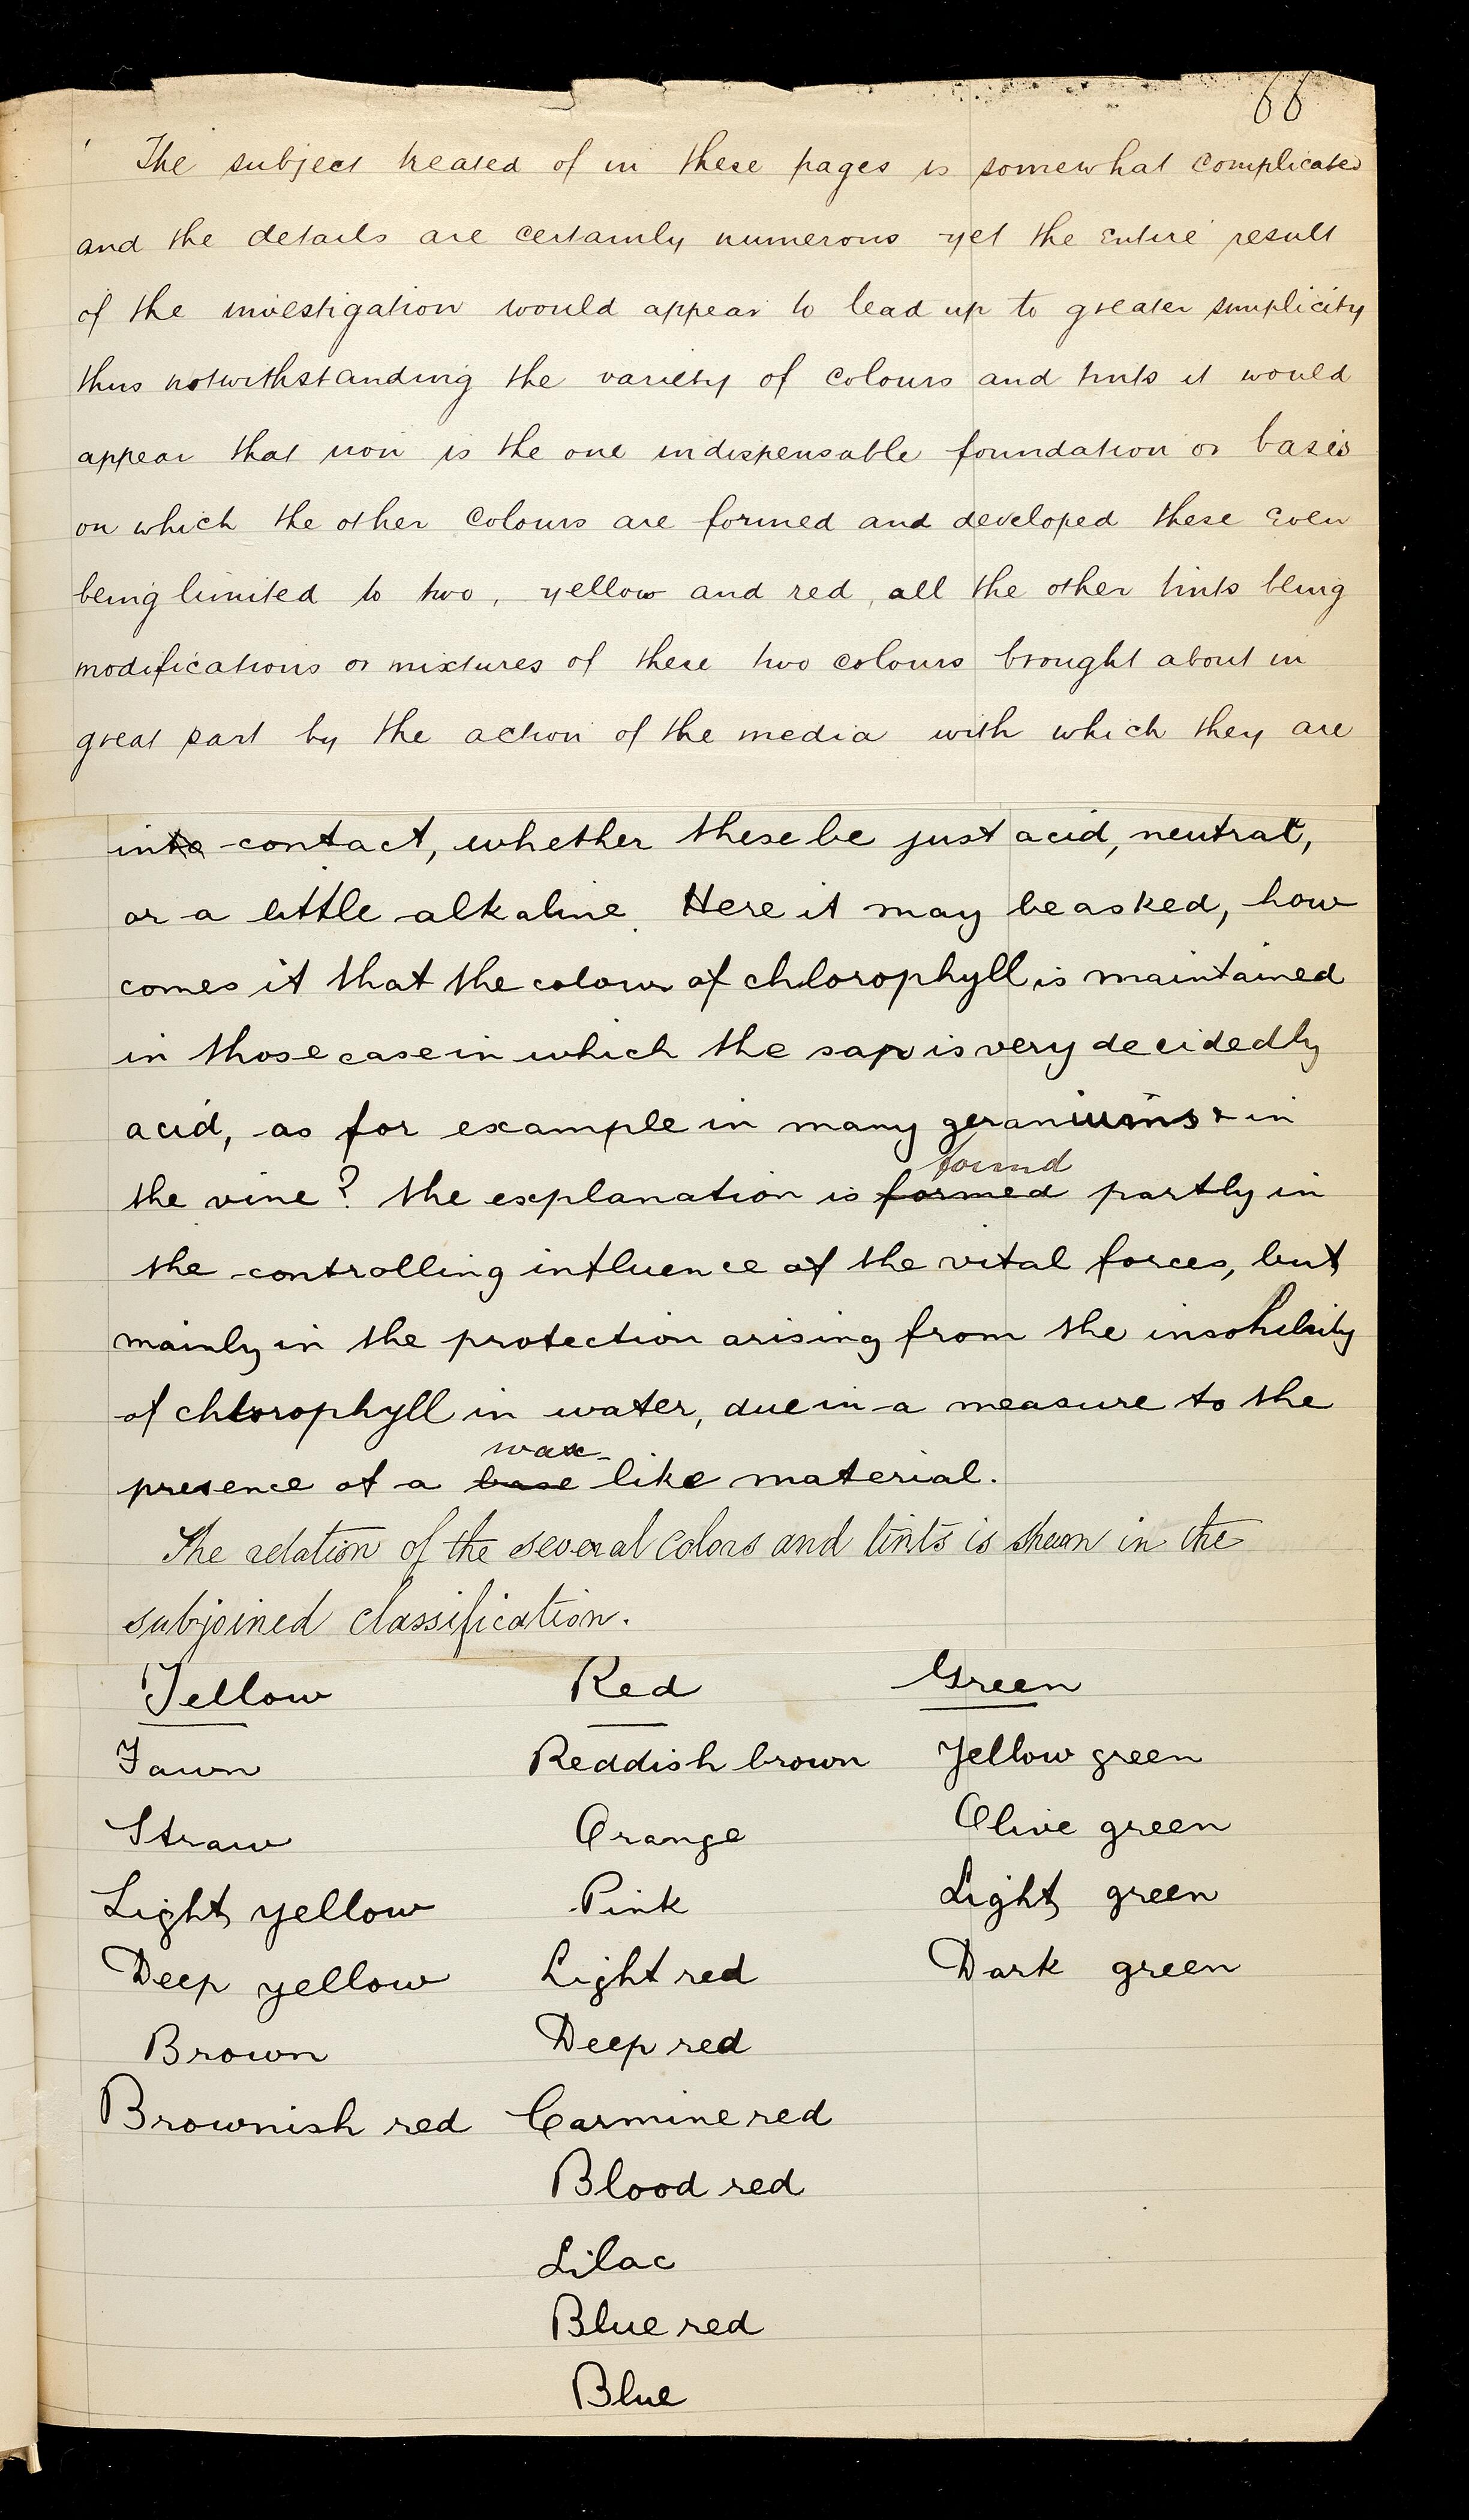 66
The subject treated of in these pages is somewhat complicated
and the details are certainly numerous yet the entire result
of the investigation would appear to lead up to greater simplicity
thus notwithstanding the variety of colours and tints it would
appear that iron is the one indispensable foundation or basis
on which the other colours are formed and developed these even
being limited to two, yellow and red, all the other tints being
modifications or mixtures of these two colours brought about in
great part by the action of the media with which they are
into contact, whether these be just acid, neutral,
or a little alkaline. Here it may be asked, how
comes it that the colour of chlorophyll is maintained
in those case in which the sap is very decidedly
acid, as for example in many geraniums & in
found
the vine? the explanation is formed partly in
the controlling influence of the vital forces, but
mainly in the protection arising from the insolubility
of chlorophyll in water, due in a measure to the
wax-
presence of a base like material.
The relation of the several colors and tints is shewn in the
subjoined classification.
Yellow Red Green
Fawn Reddish brown Yellow green
Straw Orange Olive green
Light yellow Pink Light green
Deep yellow Light red Dark green
Brown Deep red
Brownish red Carmine red
Blood red
Lilac
Blue red
Blue